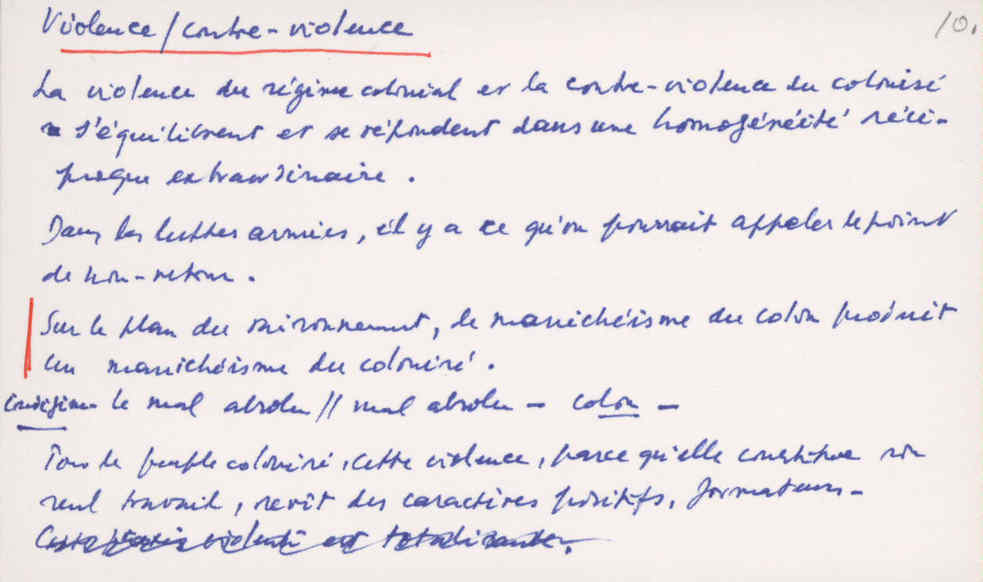 Violence / contre-violence
10.
La violence du régime colonial et la contre-violence du colonisé
s'équilibrent et se répondent dans une homogénéité réci-
proque extraordinaire.
Dans les luttes armées, il y a ce qu'on pourrait appeler le point
de non-retour.
Sur le plan du raisonnement, le manichéisme du colon produit
un manichéisme du colonisé.
le mal absolu // mal absolu - colon -
le peuple colonisé, cette violence, parce qu'elle constitue son
seul travail, revêt des caractères positifs, formateurs.
violente est totalisante.